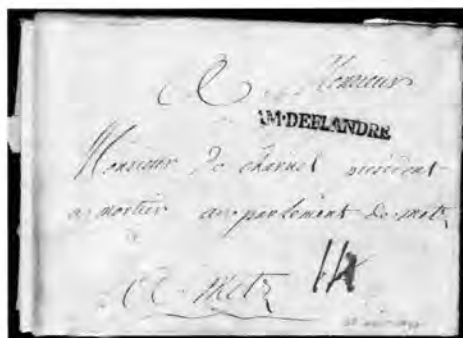 A Monsieur
AM·DEFLANDRE
Monsieur de charnel président
a mortier au parlement de metz
A Metz